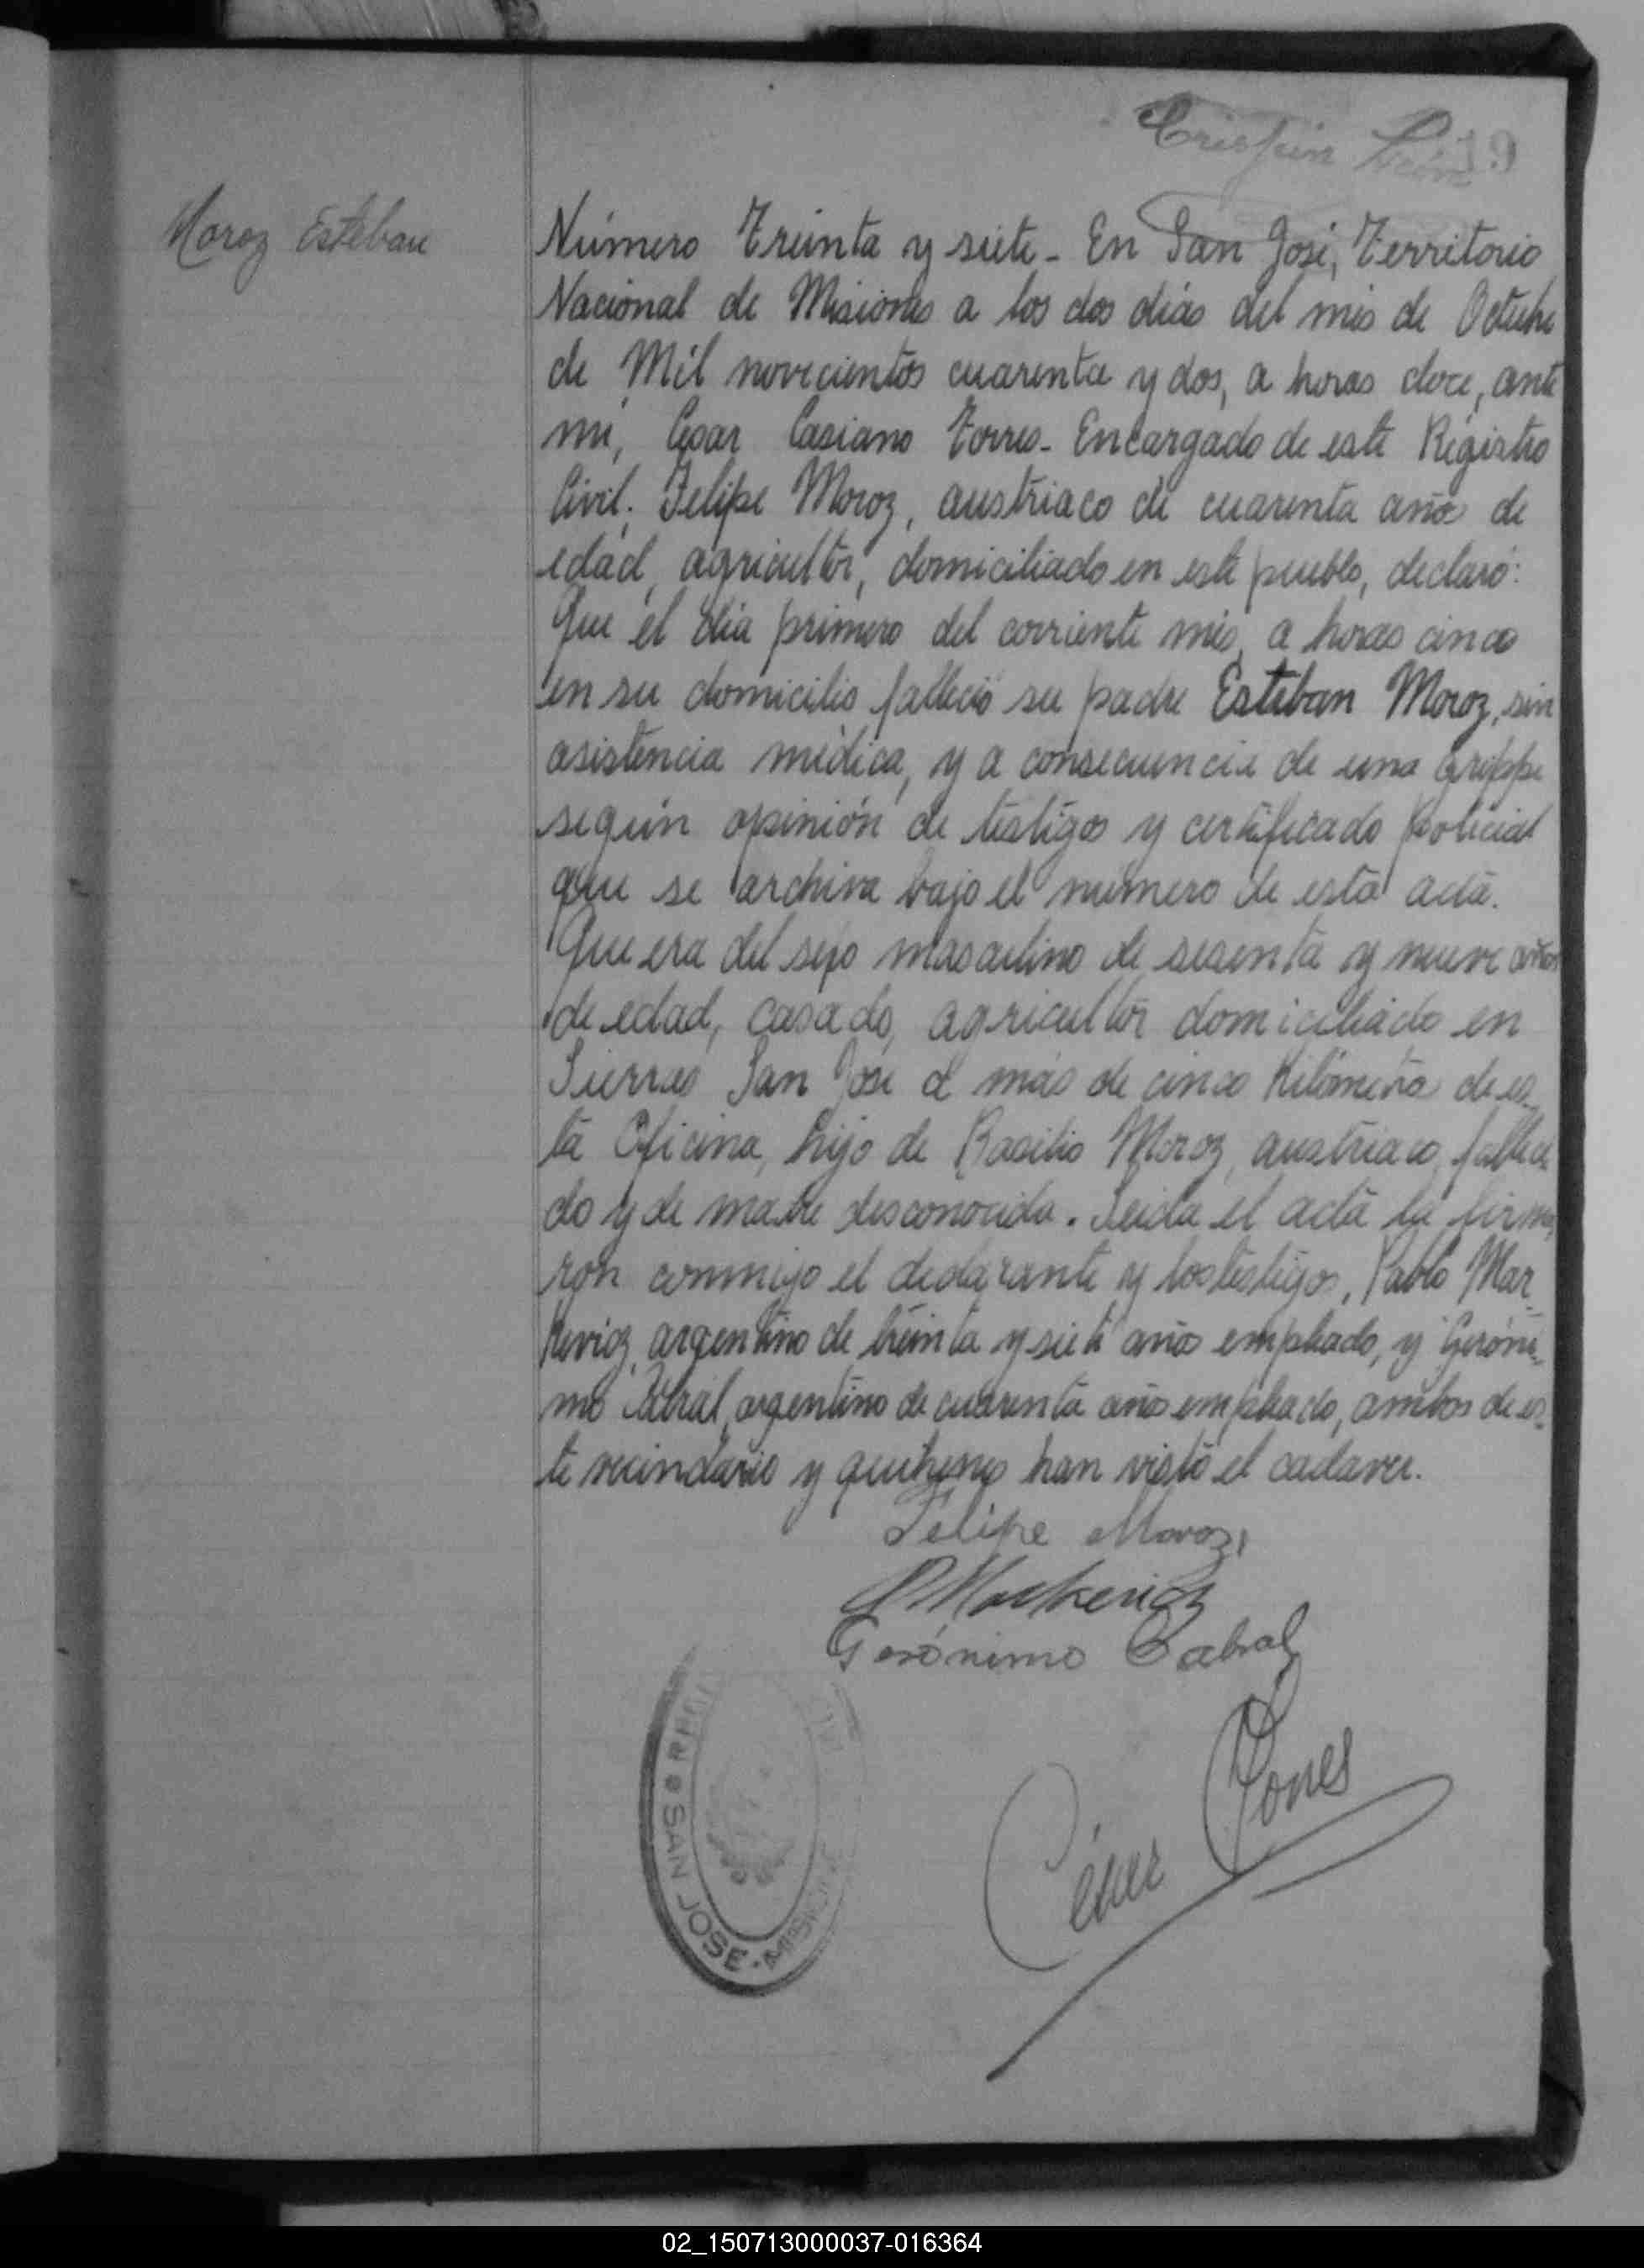 Crispin
19
Moroz Esteban
Número Treinta y siete - En San José, Territorio
Nacional de Misiones a los dos días del mes de Octubre
de Mil novecientos cuarenta y dos, a horas doce, ante
mi, Cesar Casiano Torres - Encargado de este Registro
Civil; Felipe Moroz, austriaco de cuarenta años de
edad, agricultor, domiciliado en este pueblo, declaró:
Que el día primero del corriente mes, a horas cinco
en su domicilio falleció su padre Esteban Moroz, sin
asistencia médica, y a consecuencia de una grippe
según opinión de testigos y certificado policial
que se archiva bajo el número de esta acta.
Que era del sexo masculino de sesenta y nueve años
de edad, casado, agricultor domiciliado en
Sierras San José a más de cinco Kilómetros de es-
ta Oficina, hijo de Basilio Moroz, austriaco, falleci
do y de madre desconocida. Leida el acta la firma
ron conmigo el declarante y los testigos, Pablo Mar-
kevicz, argentino de treinta y siete años empleado, y Geróni-
mo Cabral, argentino de cuarenta años empleado, ambos de es-
te vecindario y quienes han visto el cadaver.
Felipe Moroz
P Markevicz
Gerónimo Cabral
César Torres
SAN JOSE - MISIONES
02_150713000037-016364